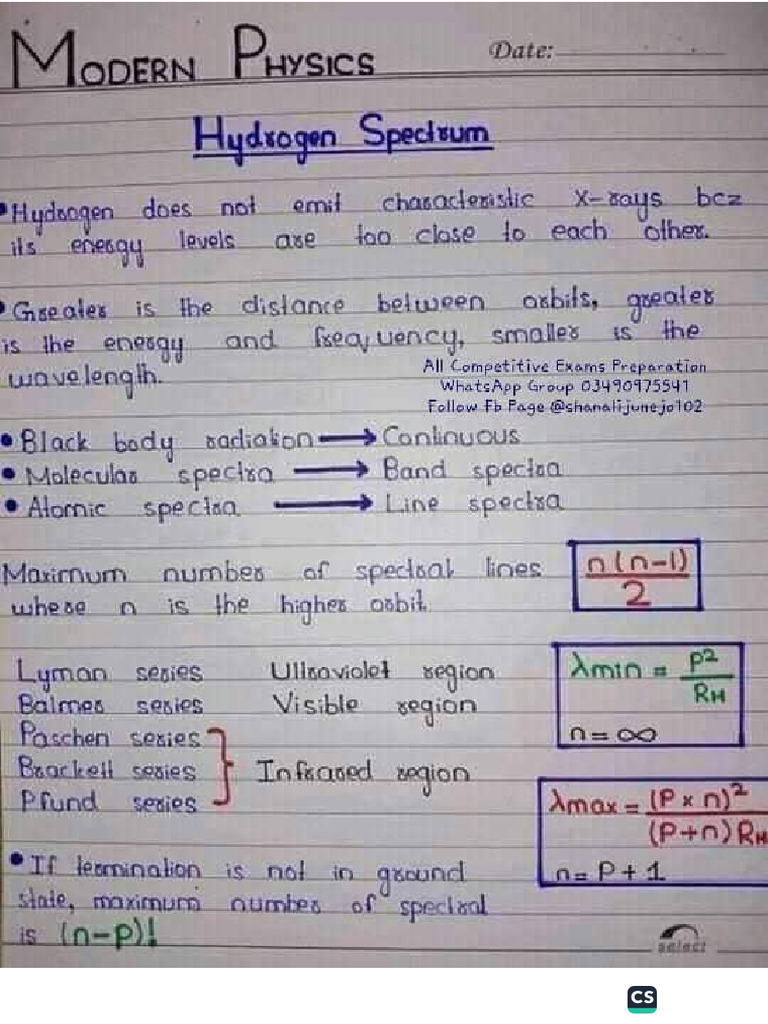 MODERN PHYSICS
Date:
Hydrogen Spectrum
• Hydrogen does not emit characteristic X-rays bcz
its energy levels are too close to each other.
• Greater is the distance between orbits, greater
is the energy and frequency, smaller is the
wavelength.
All Competitive Exams Preparation
WhatsApp Group 03490975541
Follow Fb Page @shanalijunejo102
• Black body radiation → Continuous
• Molecular spectra → Band spectra
• Atomic spectra → Line spectra
Maximum number of spectral lines n(n-1)/2
where n is the higher orbit.
Lyman series Ultraviolet region
Balmer series Visible region
Paschen series
Brackett series } Infrared region
Pfund series
λmin = P²/RH
n = ∞
λmax = (P × n)²/(P+n) RH
n = P + 1
• If termination is not in ground
state, maximum number of spectral
is (n-P)!
select
CS